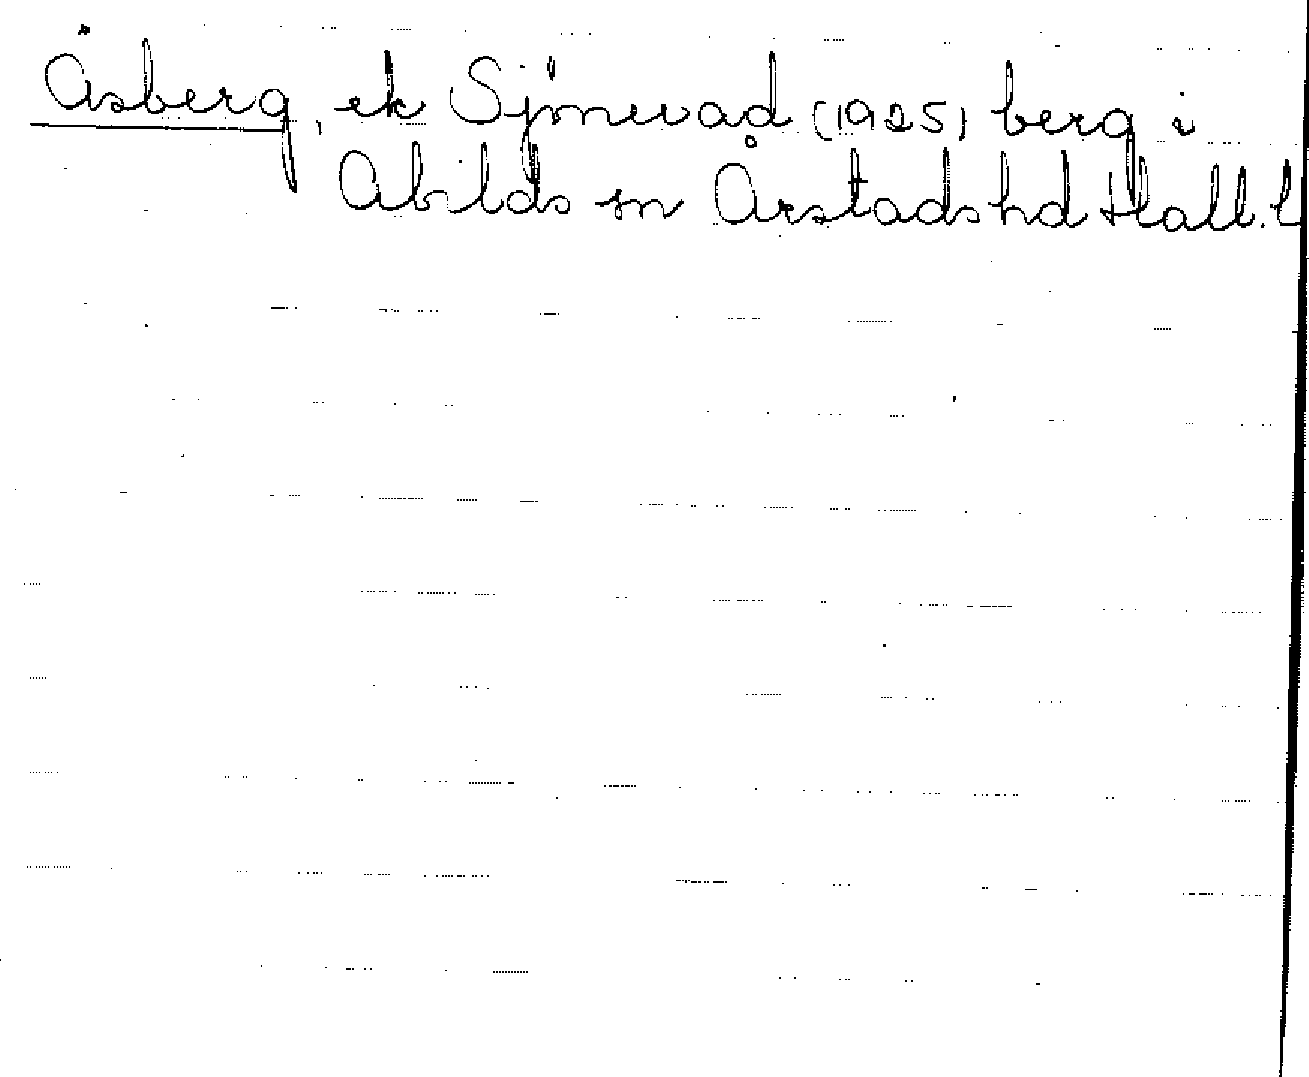 Åsberg, ek Sjönevad (1925) berg i
Abilds sn Årstads hd Hall. l